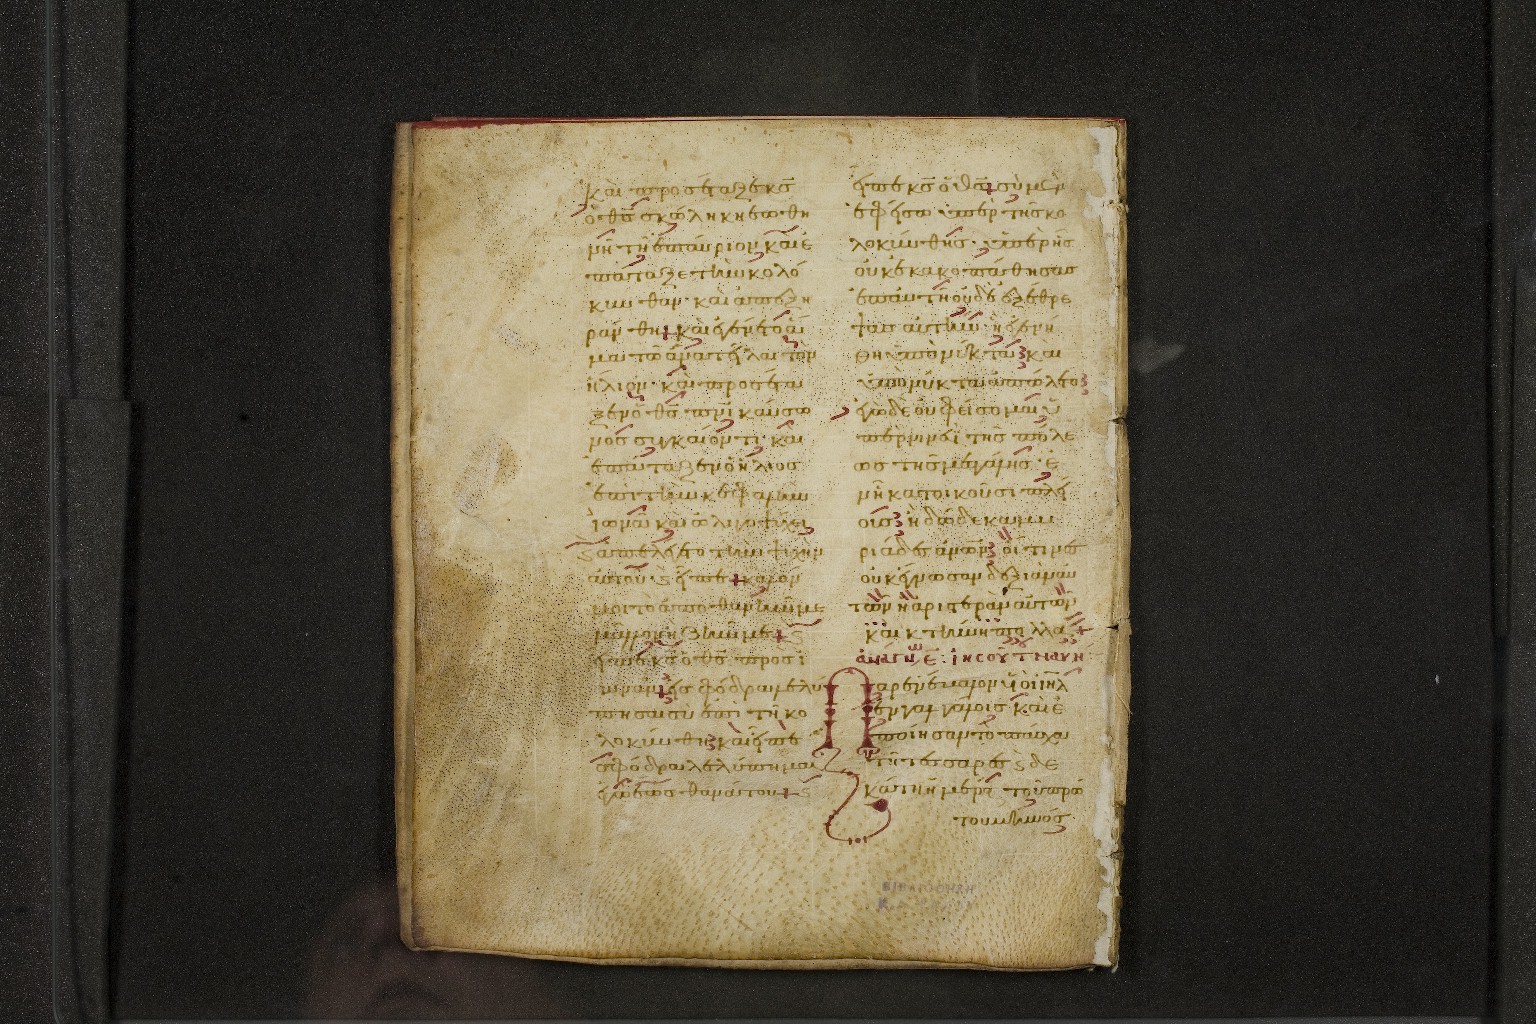 καὶ προσέταξε κ̅ς̅
ὁ θ̅ς̅ σκώληκι ἑωθι
νῇ τῇ ἐπαύριον καὶ ἐ
πάταξε τὴν κολό
κυνθαν· καὶ ἀπεξη
ράνθη καὶ ἐγένετο ἅ
μα τῶ ἀνατεῖλαι τὸν
ἥλιον· καὶ προσέτα
ξεν ὁ θ̅ς̅ πν̅ι καύσω
νος συγκαίοντι· καὶ
ἐπάταξεν ὁ ἥλιος
ἐπὶ τὴν κεφαλὴν
ἰωνᾶ καὶ ὠλιγοψύχει
ϛ ἀπελέγετο τὴν ψυχὴν
αὐτοῦ· ϛ εἶπε καλόν
μοι τὸ ἀποθανεῖν με
μᾶλλον ἢ ζῆν με ϛ
εἶπε κ̅ς̅ ὁ θ̅ς̅ πρὸς ἰ
ωνᾶν εἰ σφόδρα λελύ
πησαι σὺ ἐπὶ τῇ κο
λοκύνθῃ καὶ εἶπε
σφόδρα λελύπημαι
ἐγὼ ἕως θανάτου ϛ
εἶπε κ̅ς̅ ὁ θ̅ς̅ σὺ μὲν
ἐφείσω ὑπὲρ τῆς κο
λοκύνθης· ὑπὲρ ἧς
οὐκ ἐκακοπάθησας
ἐπ' αὐτὴν οὐδὲ ἐξέθρε
ψας αὐτήν· ἣ ἐγενή
θη ὑπὸ νύκτα καὶ
ὑπὸ νύκτα ἀπώλετο
ἐγὼ δὲ οὐ φείσομαι ὑ
πὲρ νινευῒ τῆς πόλε
ως τῆς μεγάλης· ἐ
ν ᾗ κατοικοῦσι πλεί
οις ἢ δώδεκα μυ
ριάδες ἀνων̅ οἵτινες
οὐκ ἔγνωσαν δεξιὰν αὐ
τῶν ἢ ἀριστερὰν αὐτῶν
καὶ κτήνη πολλά
ἀνάγνω Ε ἰησοῦ τ ναυῆ
Παρενέβαλον ὑἱοὶ ιη̅λ
ἐν γαλγάλοις καὶ ἐ
ποίησαν τὸ πάσχα
τῇ τεσσαρεσϛδε
κάτη ἡμέρᾳ τοῦ πρώ
του μηνός·
ΒΙΒΛΙΟΘΗΚΗ